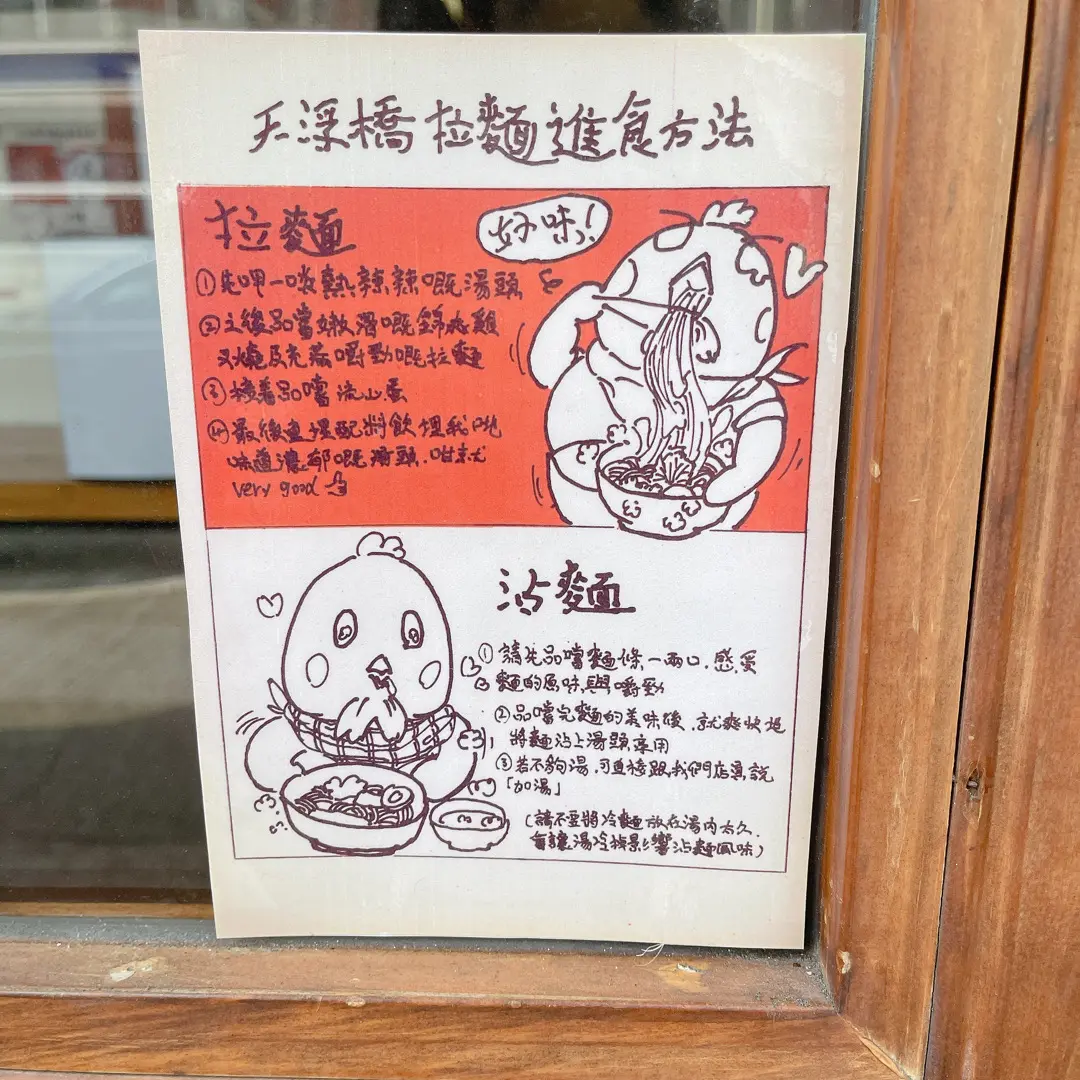 天浮橋拉麵進食方法
拉麵
好味!
①先呷一啖熱辣辣嘅湯頭
②之後品嚐嫩滑嘅錦爽雞
叉燒及充滿嚼勁嘅拉麵
③接着品嚐流心蛋
④最後連埋配料飲埋我哋
味道濃郁嘅湯頭.咁就
very good
沾麵
①請先品嚐麵條一兩口,感受
麵的原味與嚼勁
②品嚐完麵的美味後,就爽快地
將麵沾上湯頭享用
③若不夠湯,可直接跟我們店員說
「加湯」
(請不要將冷麵放在湯內太久,
會讓湯冷掉影響沾麵風味)